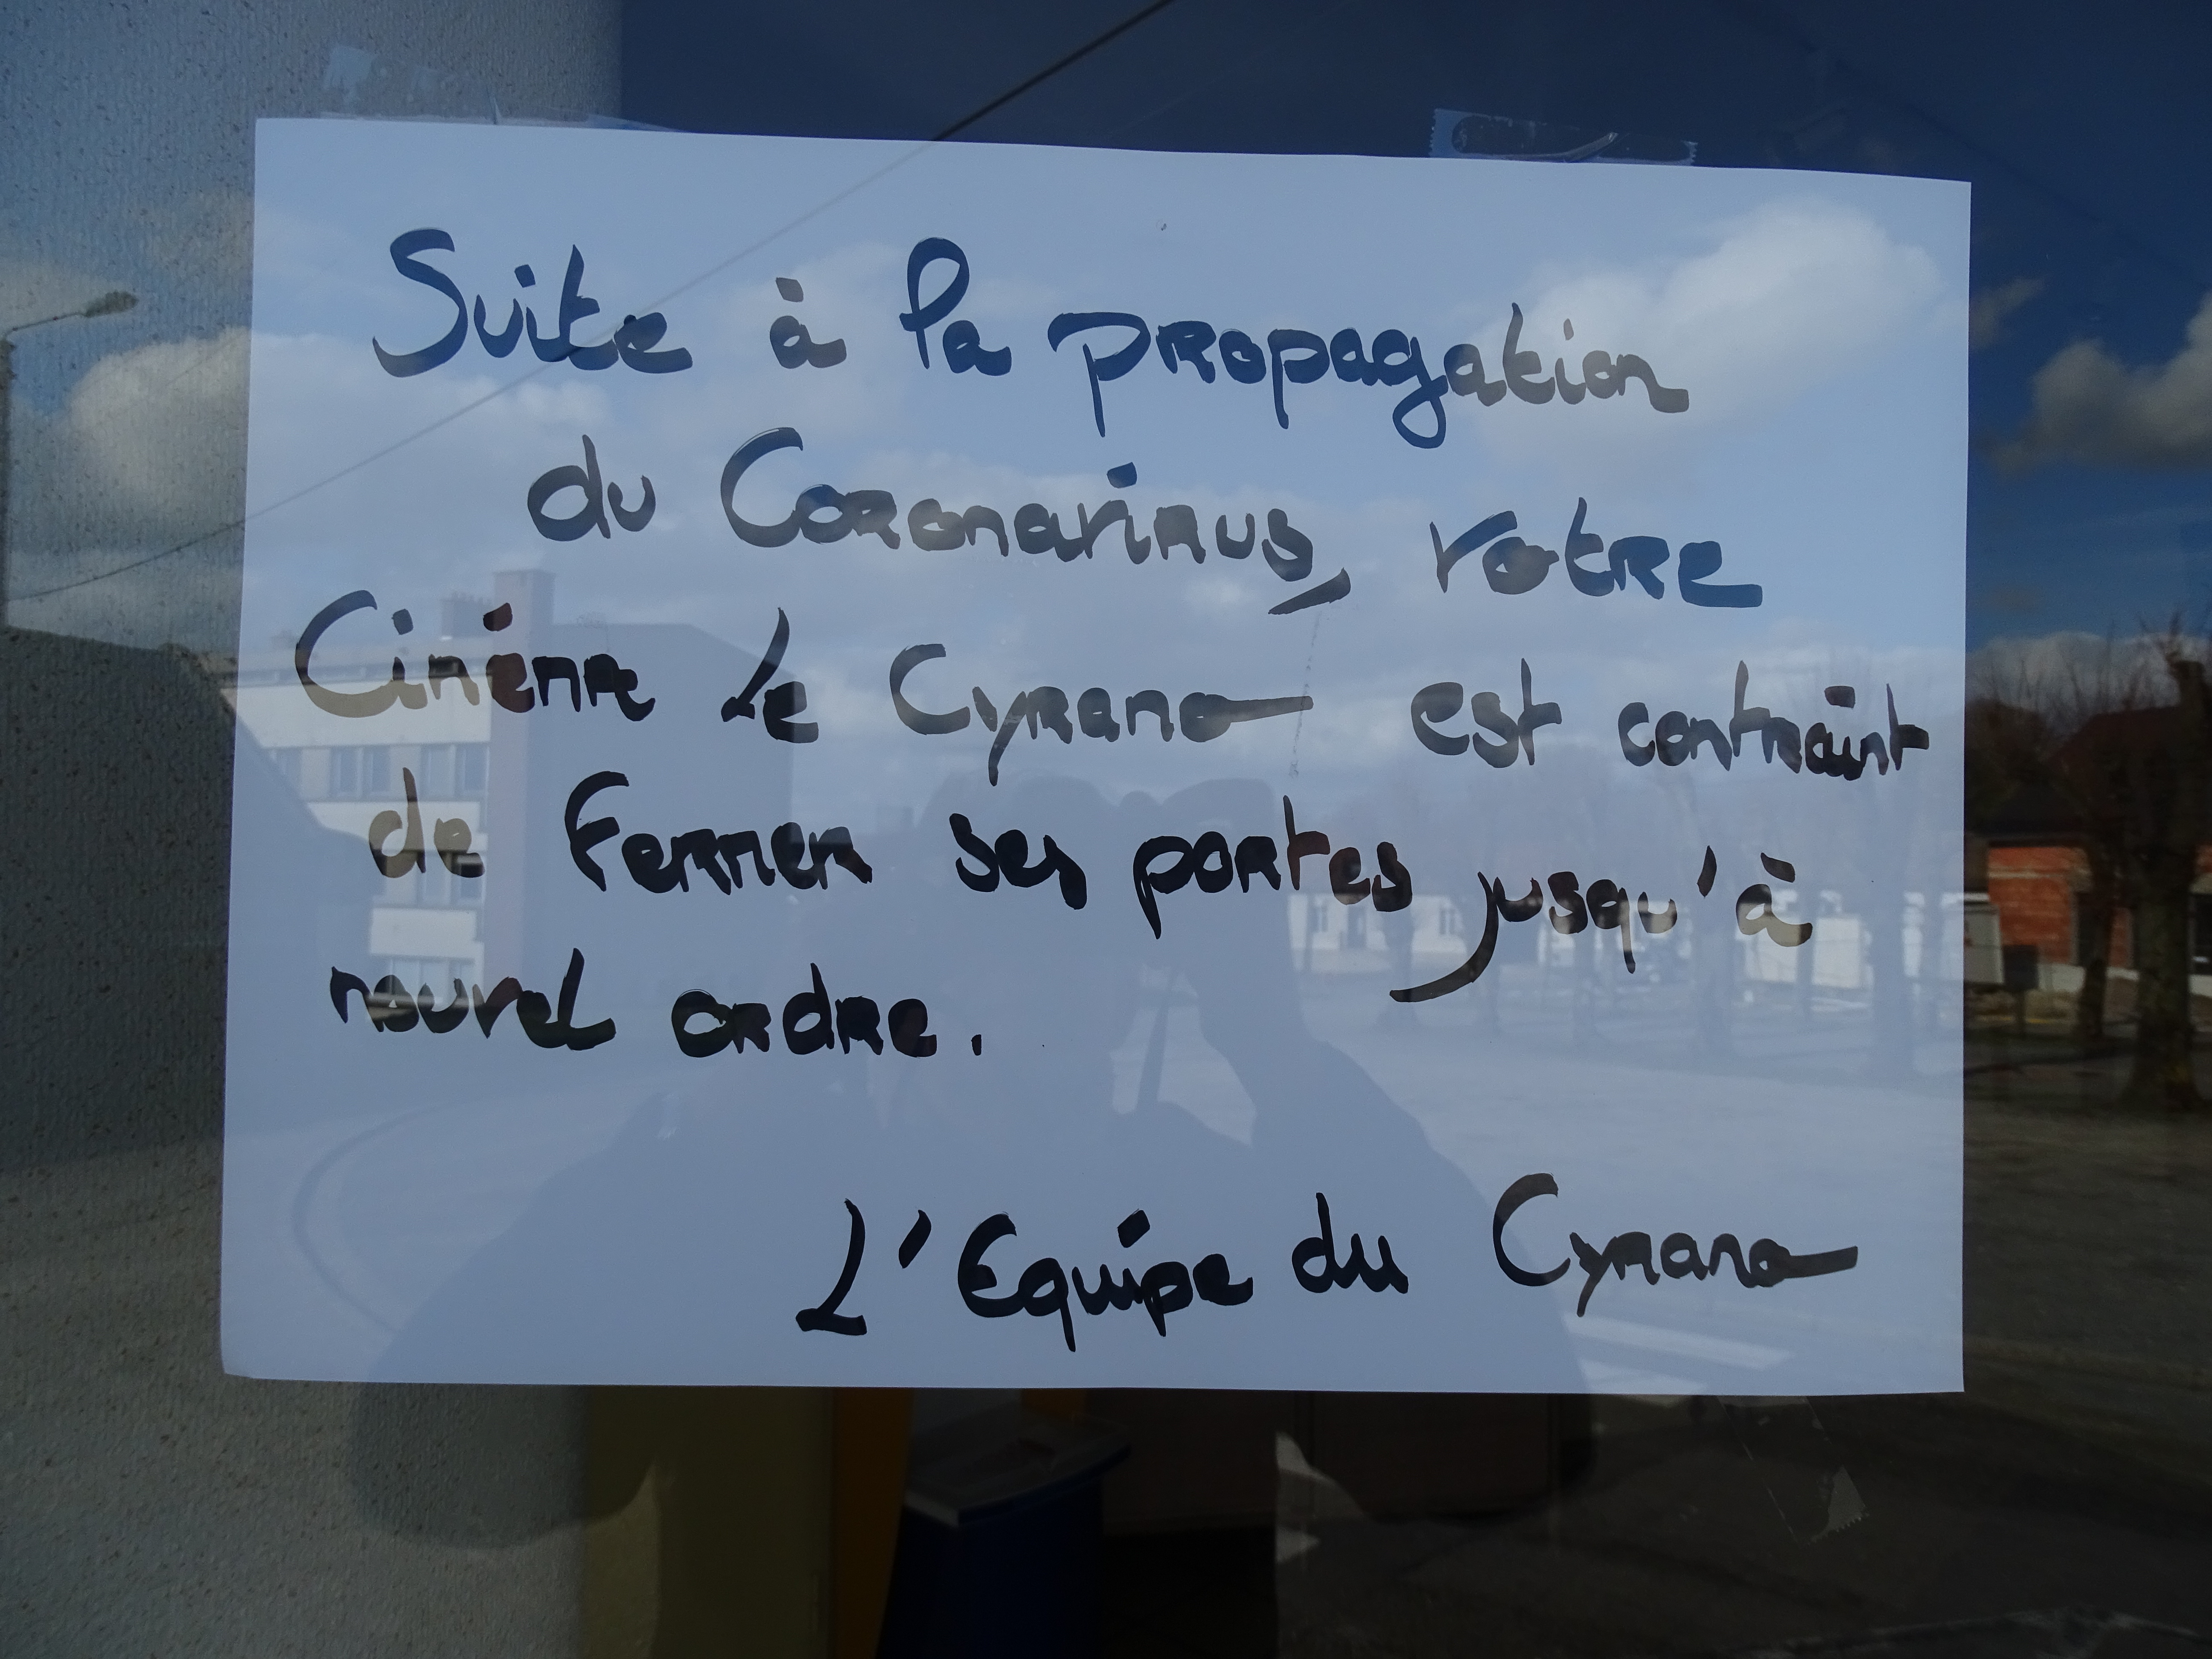 Suite à la propagation
du Coronavirus, votre
Cinéma Le Cyrano est contraint
de Fermer ses portes jusqu'à
nouvel ordre.
L'Equipe du Cyrano